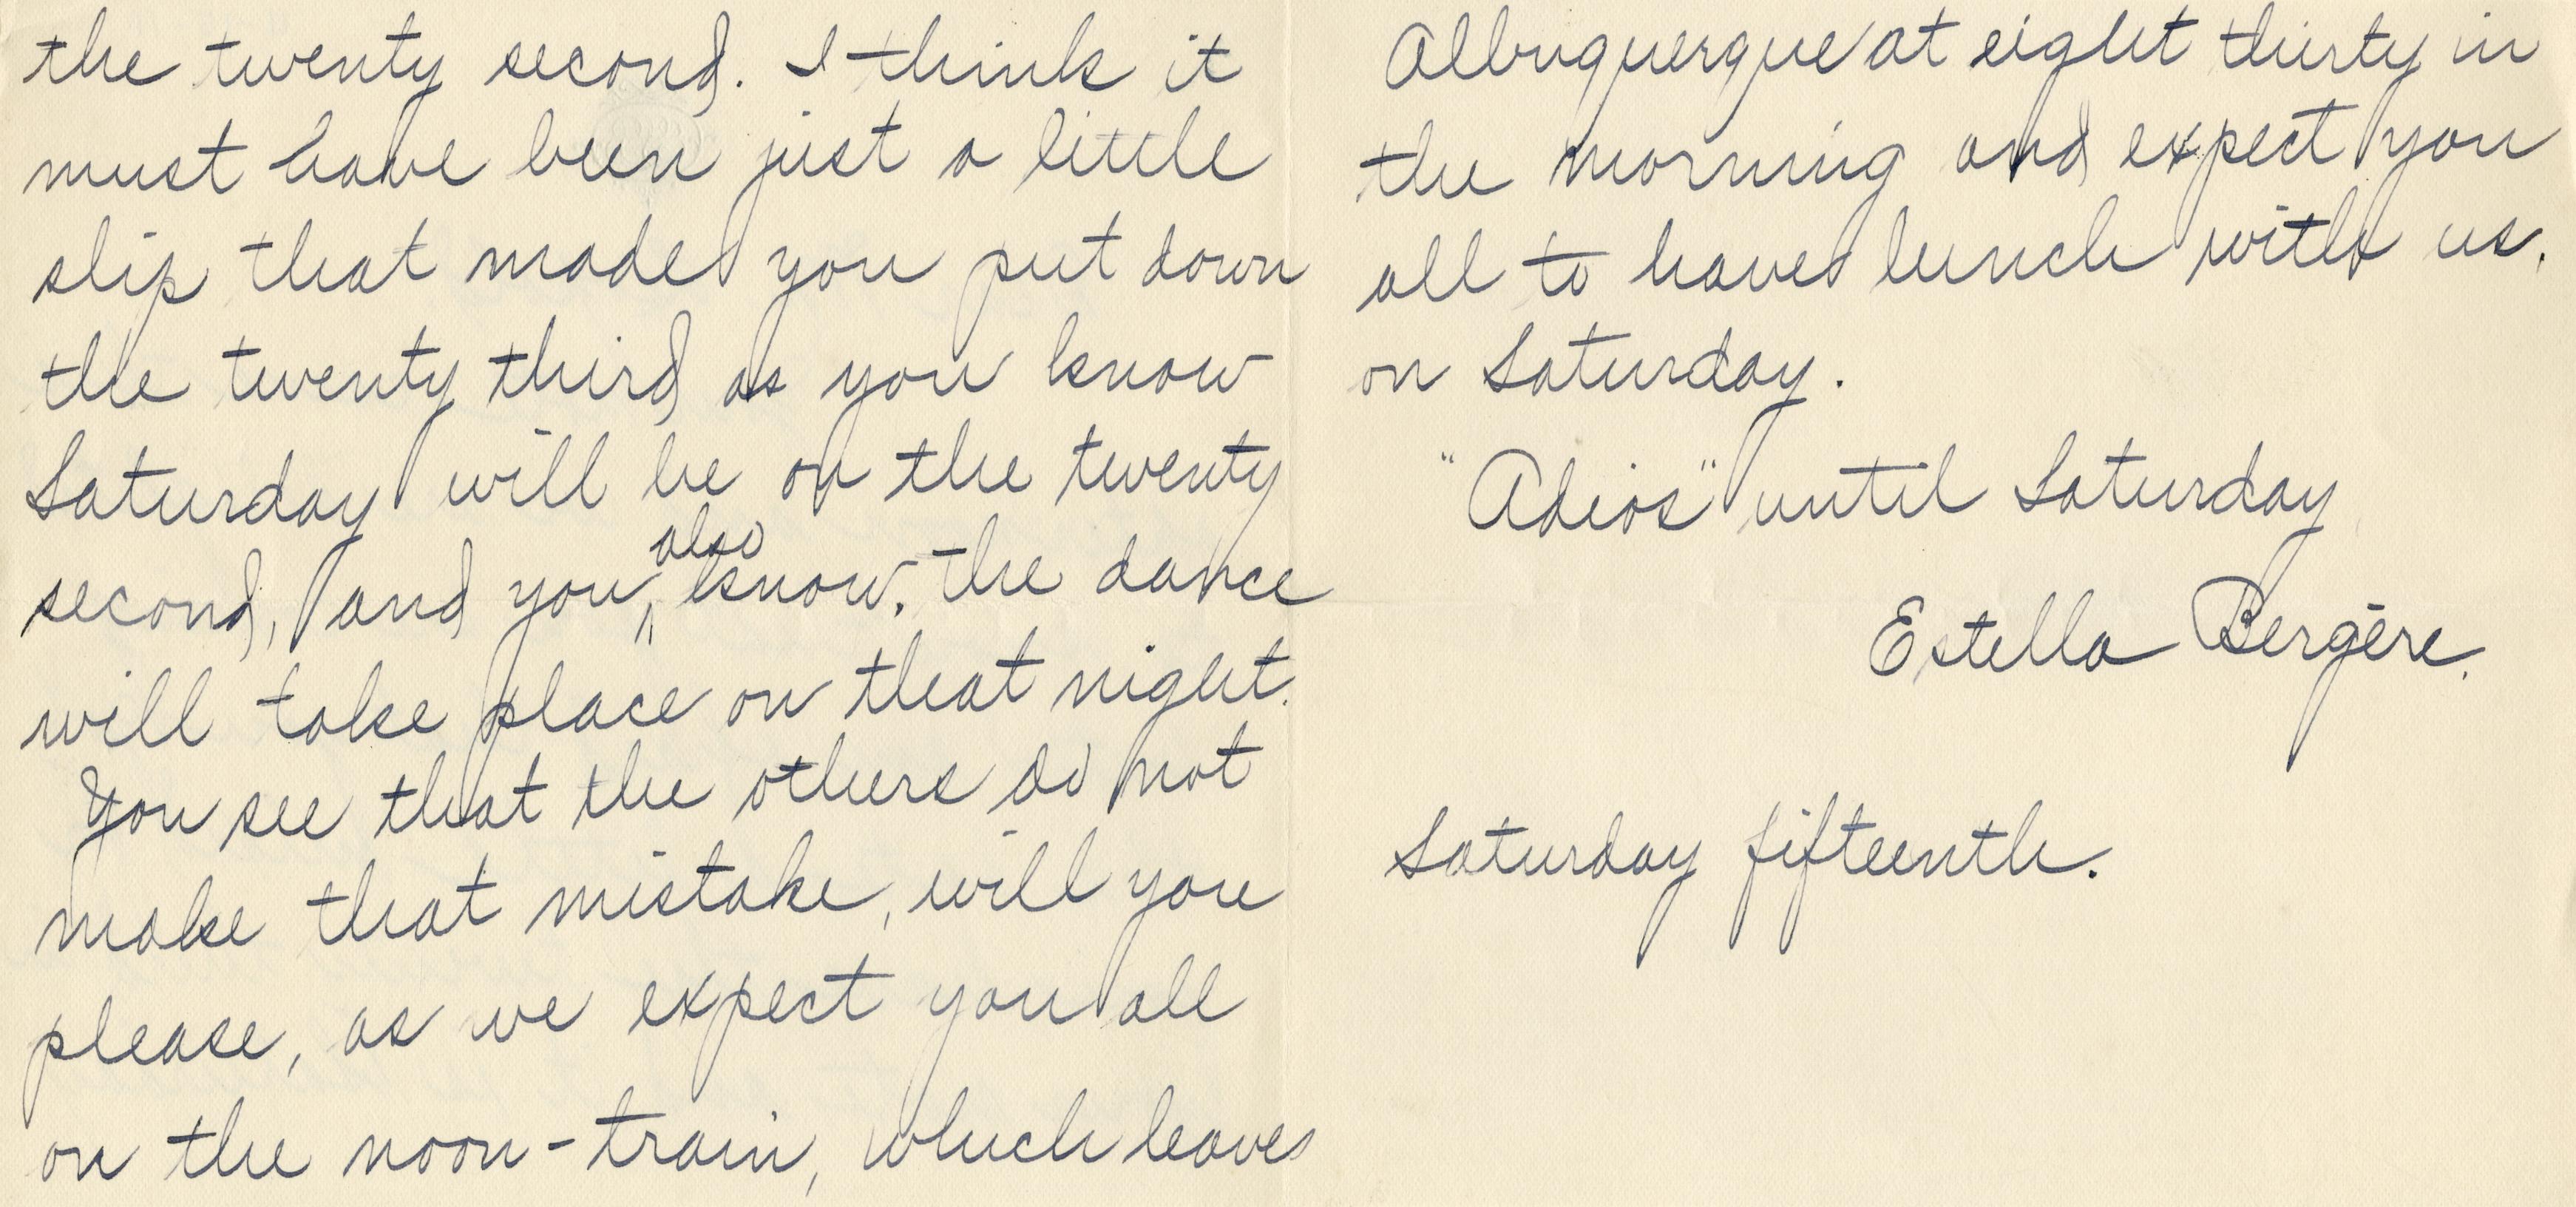 the twenty second. I think it
must have been just a little
slip that made you put down
the twenty third as you know
Saturday will be on the twenty
second, and you also know, the dance
will take place on that night.
You see that the others do not
make that mistake, will you
please, as we expect you all
on the noon-train, which leaves
Albuquerque at eight thirty in
the morning and expect you
all to have lunch with us.
on Saturday.
"Adios" until Saturday
Estella Bergère.
Saturday fifteenth.